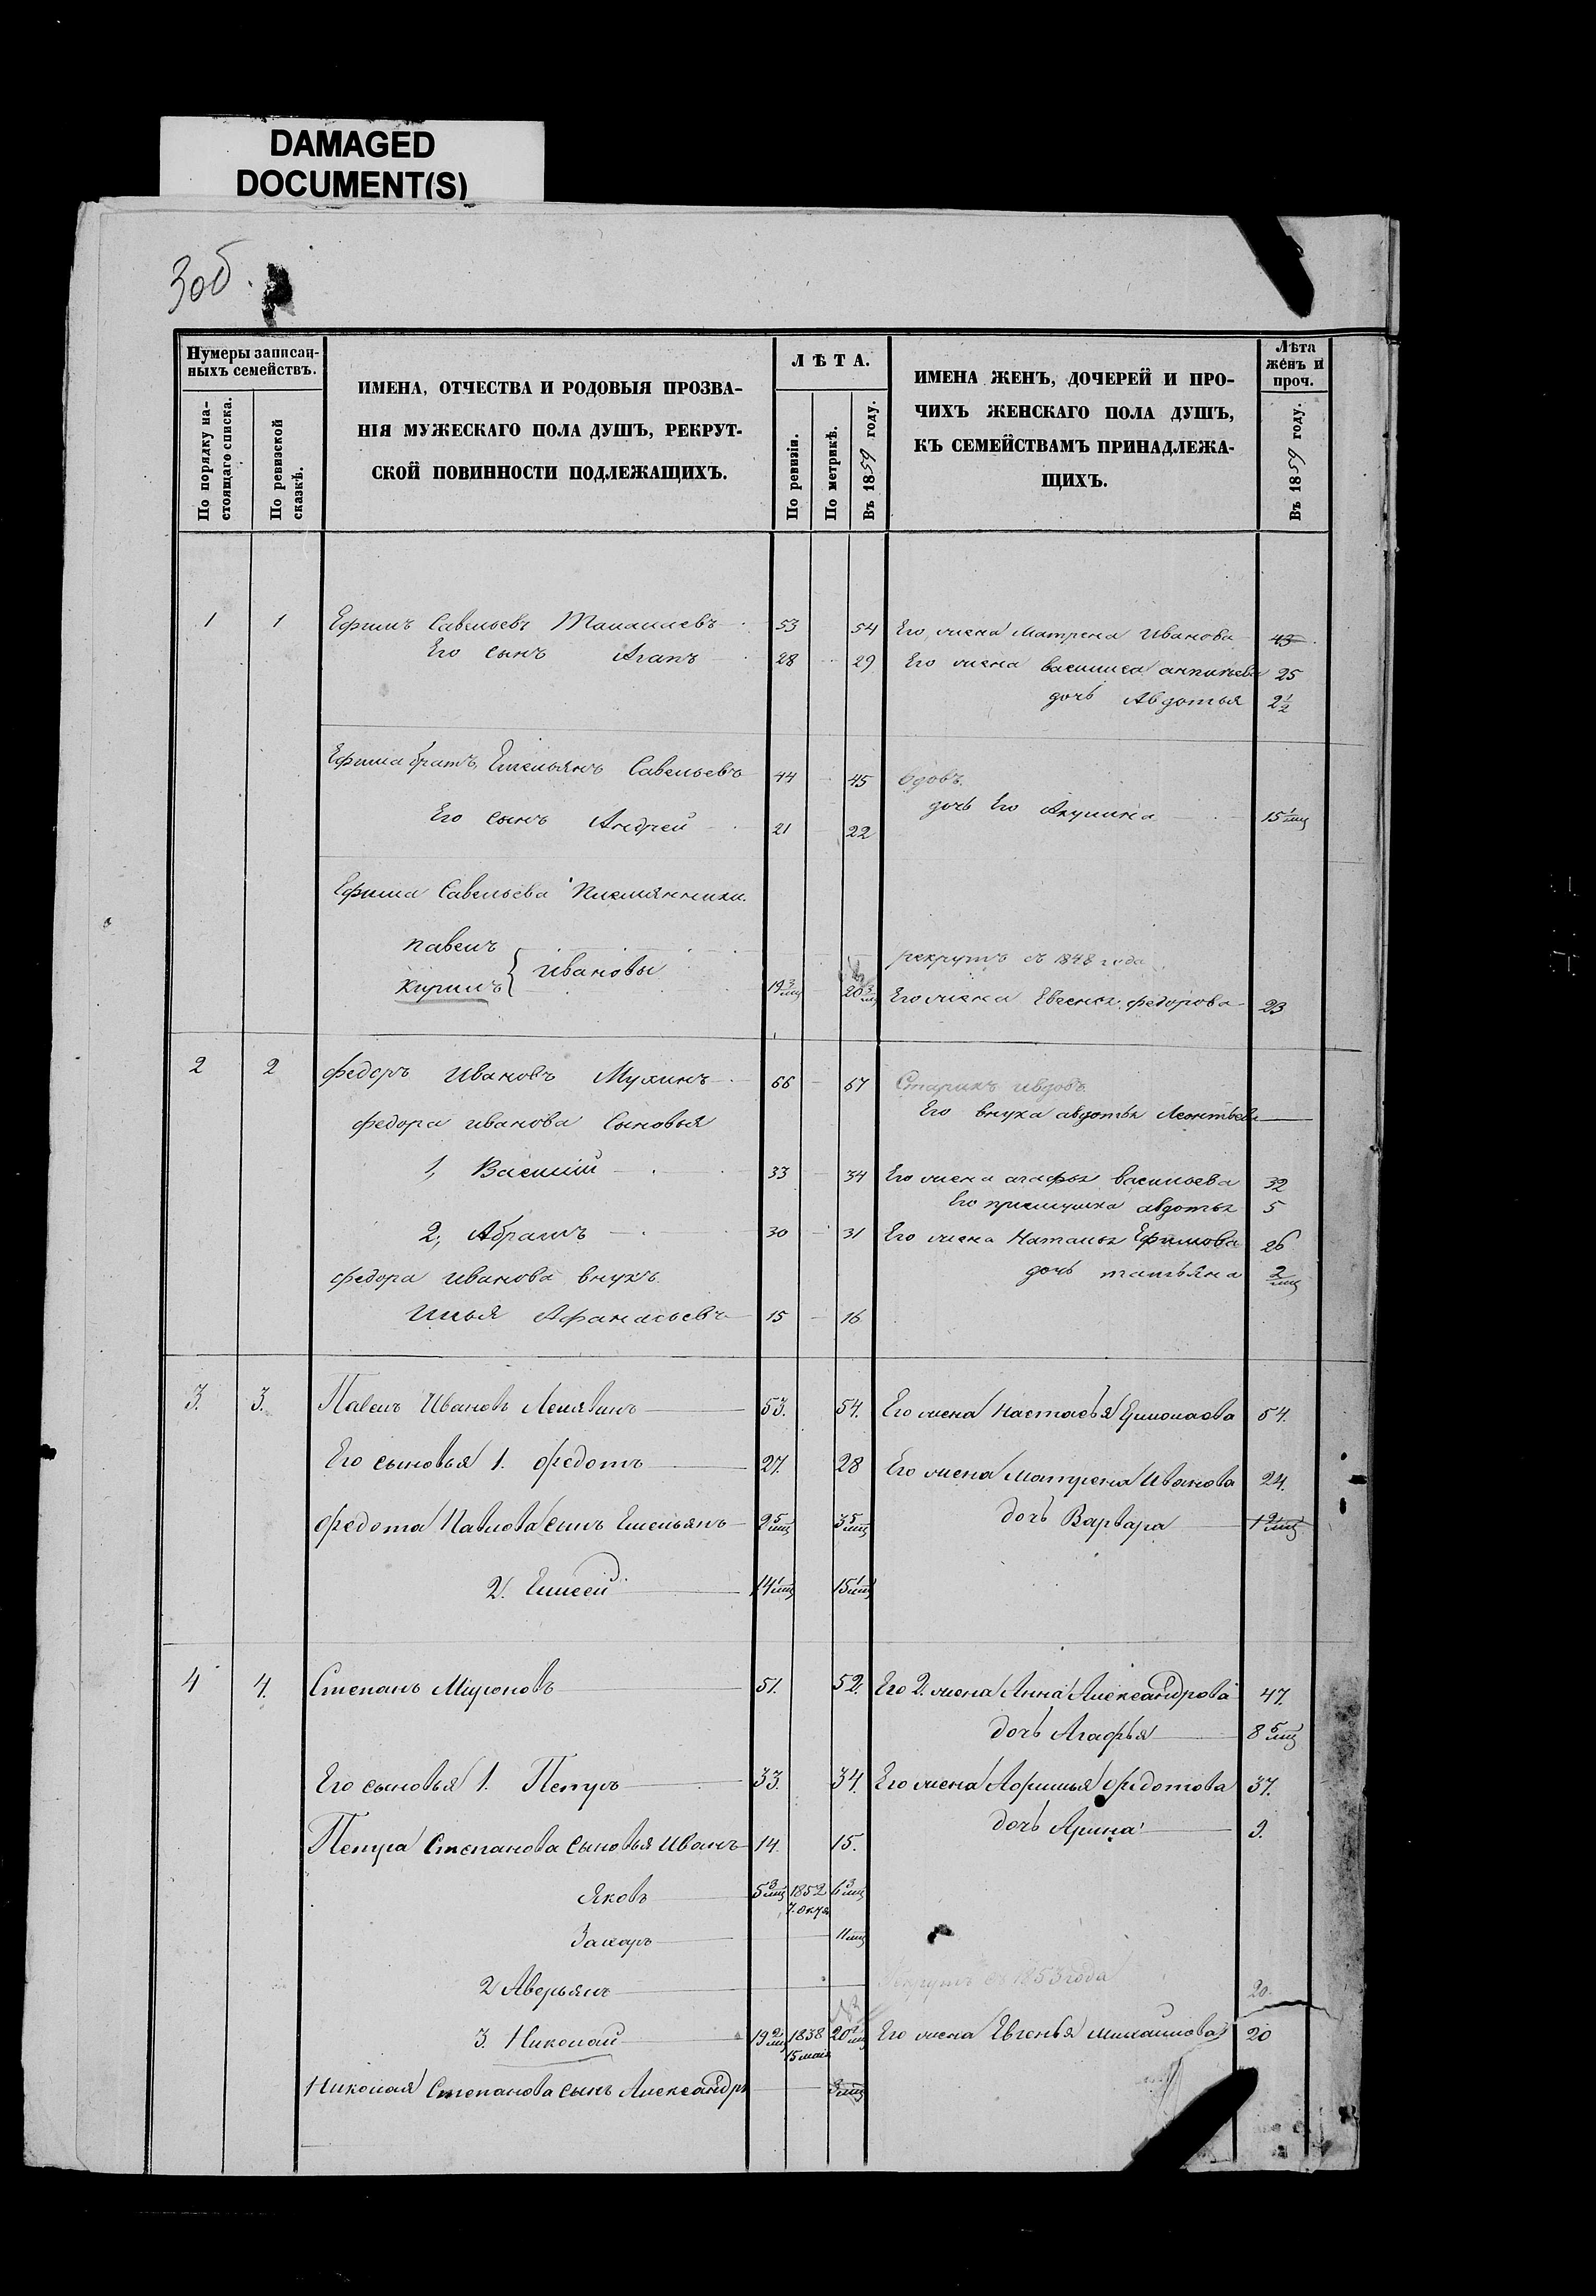 DAMAGED
DOCUMENT(S)
3об.
Нумеры записан-
ныхъ семействъ.
По порядку на-
стоящаго списка.
По ревизской
сказкѣ.
ИМЕНА, ОТЧЕСТВА И РОДОВЫЯ ПРОЗВА-
НІЯ МУЖЕСКАГО ПОЛА ДУШЪ, РЕКРУТ-
СКОЙ ПОВИННОСТИ ПОДЛЕЖАЩИХЪ.
ЛѢТА.
По ревизіи.
По метрикѣ.
Въ 1859 году.
ИМЕНА ЖЕНЪ, ДОЧЕРЕЙ И ПРО-
ЧИХЪ ЖЕНСКАГО ПОЛА ДУШЪ,
КЪ СЕМЕЙСТВАМЪ ПРИНАДЛЕЖА-
ЩИХЪ.
Лѣта
женъ и
проч.
Въ 1859 году.
1 1 Ефимъ Савельевъ 53 54 Его жена Матрена Иванова 43
Его сынъ Агапъ 28 29 Его жена василиса 25
дочь Авдотья 2 1/2
Ефима братъ Емельянъ Савельевъ 44 45 вдовъ.
дочь Его Акулина 15 1/мц
Его сынъ Андрей 21 22
Ефима Савельева племянники.
павелъ рекрутъ съ 1848 года
Кирилъ { ивановы 19 3/мц 20 3/мц Его жена Евгенья федорова 23
2 2 федоръ Ивановъ Мухинъ 66 67 Старикъ ивдовъ.
федора иванова Сыновья Его внука авдотья Леонтьева
1, Василий 33 34 Его жена агафья васильева 32
Его приемушка авдотья 5
2, Абрамъ 30 31 Его жена Наталья Ефимова 26
федора Иванова внукъ. дочь татьяна 2/мц
Илья Афанасьевъ 15 16
3. 3. Павелъ Ивановъ Лемявинъ 53. 54. Его жена Настасья Ермолаева 54.
Его сыновья 1. Федотъ 27. 28 Его жена Матрена Иванова 24.
Федота Павлова сынъ Емельянъ 2 5/мц 3 5/мц дочь Варвара 1 2/мц
2. Елисей 14 1/мц 15 1/мц
4 4. Степанъ Мироновъ 51. 52. Его 2. жена Анна Александрова 47.
дочь Агафья 8 5/мц
Его сыновья 1. Петръ 33. 34. Его жена Афимья Федотова 37.
Петра Степанова сыновья Иванъ 14. 15. дочь Арина 9.
Яковъ 5 3/мц 1852 7. окт 6 3/мц
Захаръ 11 мц
2 Аверьянъ Рекрутъ съ 1853 года 20.
3. Николай 19 2/мц 1838 15 мая 20 2/мц Его жена Евгенья михайлова 20
Николая Степанова сынъ Александръ